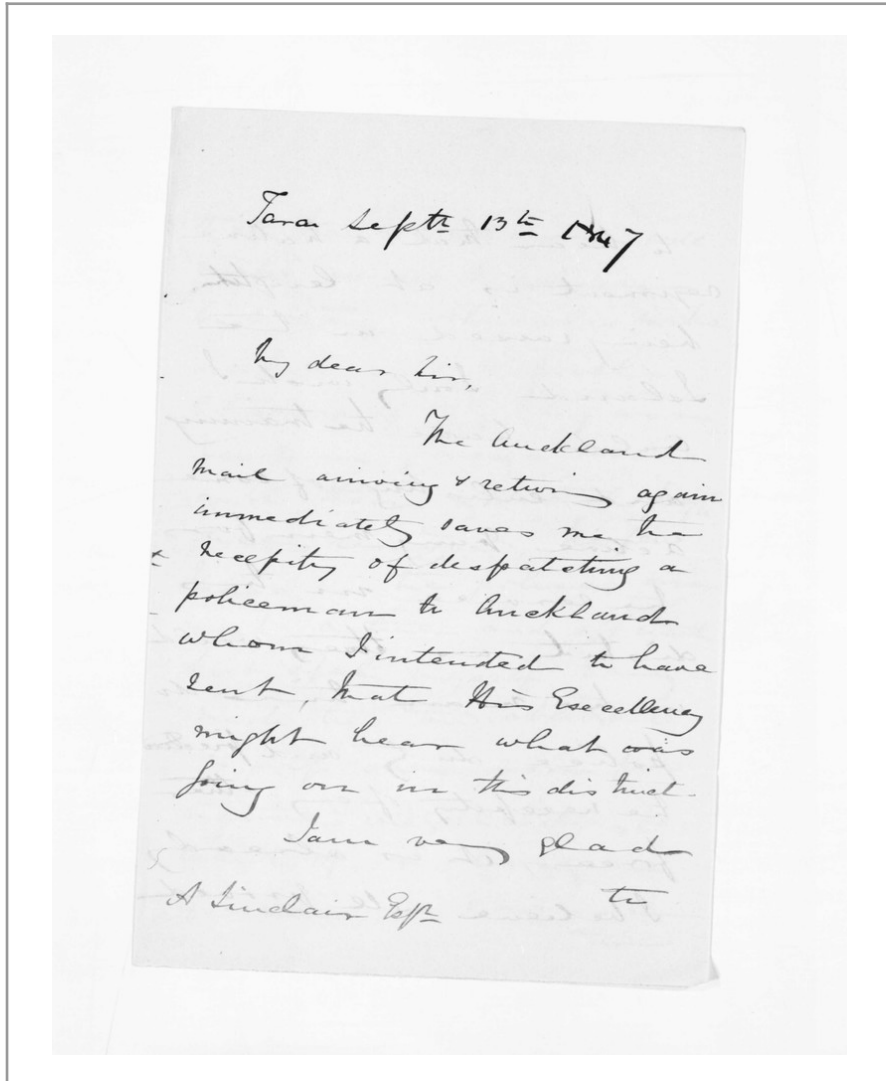 Tara Septh 13th 1847
My dear Sir,
The Auckland
mail arriving & returning again
immediately saves me the
necessity of despatching a
policeman to Auckland
whom I intended to have
sent, that His Excellency
might hear what was
going on in this district.
I am very glad
to
A Sinclair Esqr